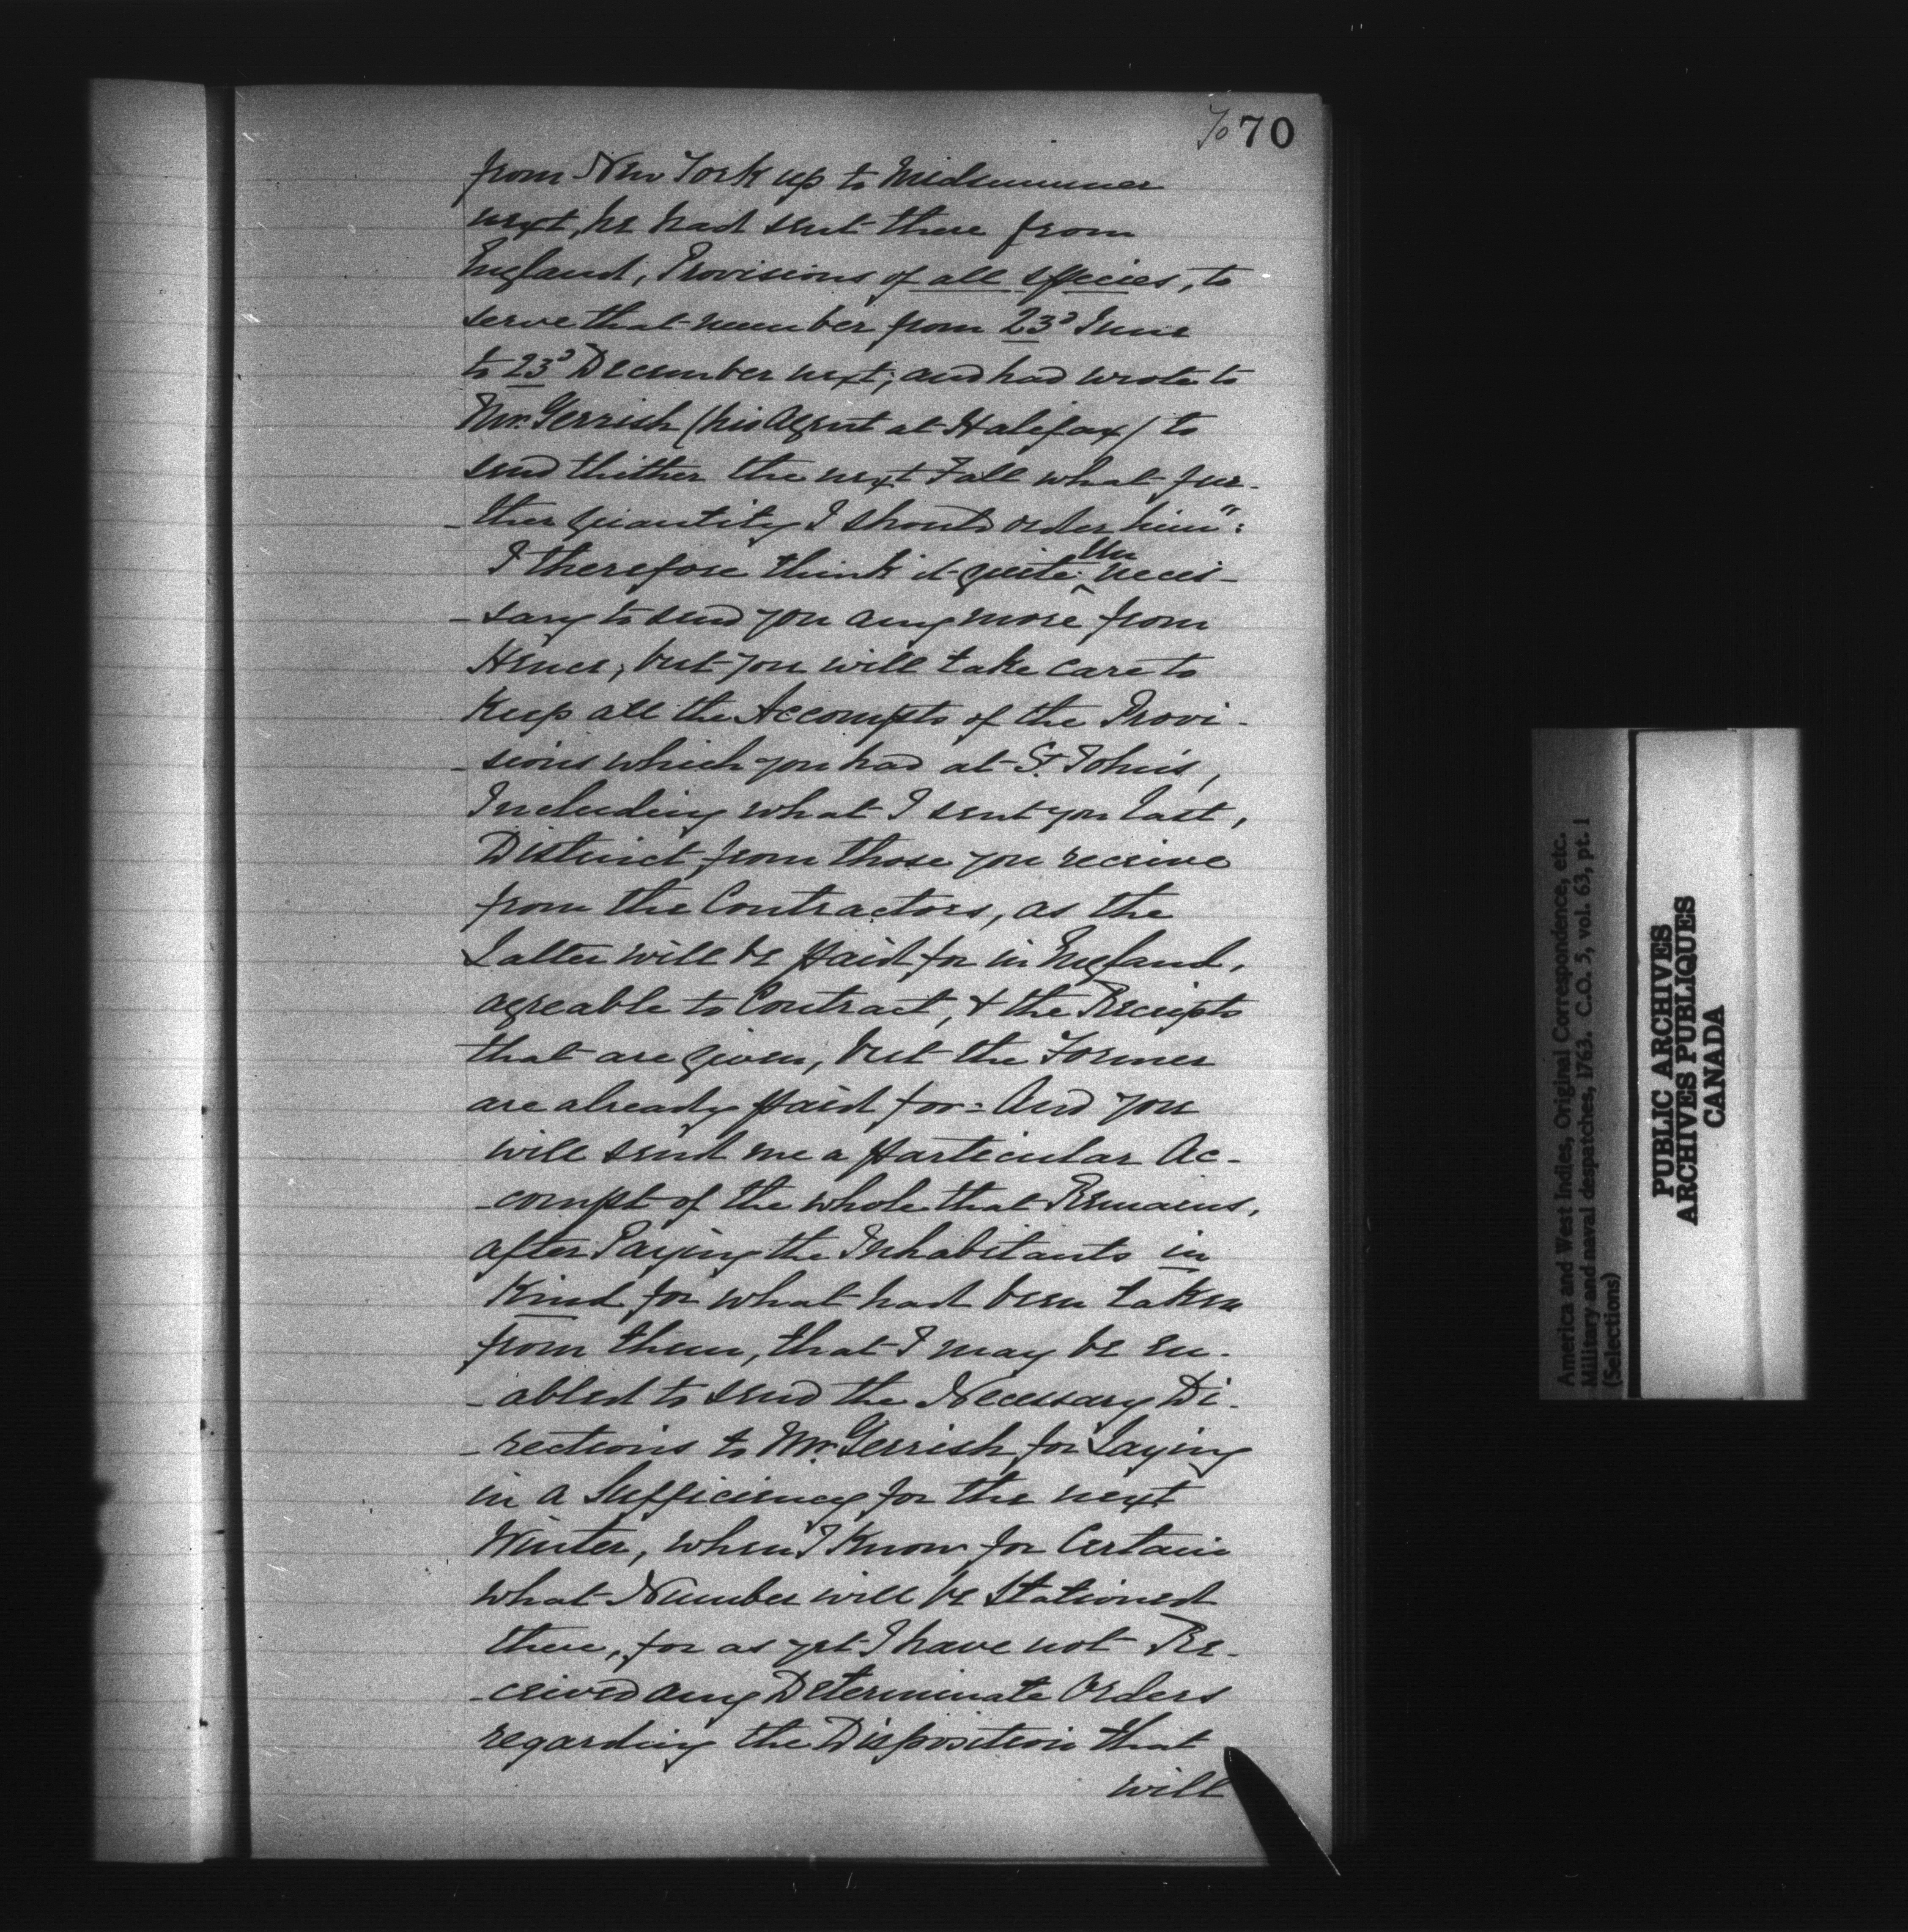 70 70
from New York up to Midsummer
next, he had sent there from
England, Provisions of all species, to
serve that number from 23d June
to 23d December next; and had wrote to
Mr. Gerrish (his Agent at Halifax) to
send thither the next Fall what fur-
-ther quantity I should order him":
I therefore think it quite Un^neces-
-sary to send you any more from
Hence; but you will take care to
Keep all the Accompts of the Provi-
-sions which you had at St. John's,
Including what I sent you last,
Distinct from those you receive
from the Contractors, as the
Latter will be paid for in England,
agreable to Contract, & the Receipts
that are given, but the Former
are already paid for: And you
will send me a particular Ac-
-compt of the whole that Remains,
after Paying the Inhabitants in
Kind for what had been taken
from them, that I may be en-
-abled to send the Necessary Di-
-rections to Mr. Gerrish for Laying
in a Sufficiency for the next
Winter, when I Know for Certain
what Number will be Stationed
there, for as yet I have not Re-
-ceived any Determinate Orders
regarding the Disposition that
will
America and West Indies, Original Correspondence, etc.
Military and naval despatches, 1763. C.O. 5, vol. 63, pt. 1
(Selections)
PUBLIC ARCHIVES
ARCHIVES PUBLIQUES
CANADA